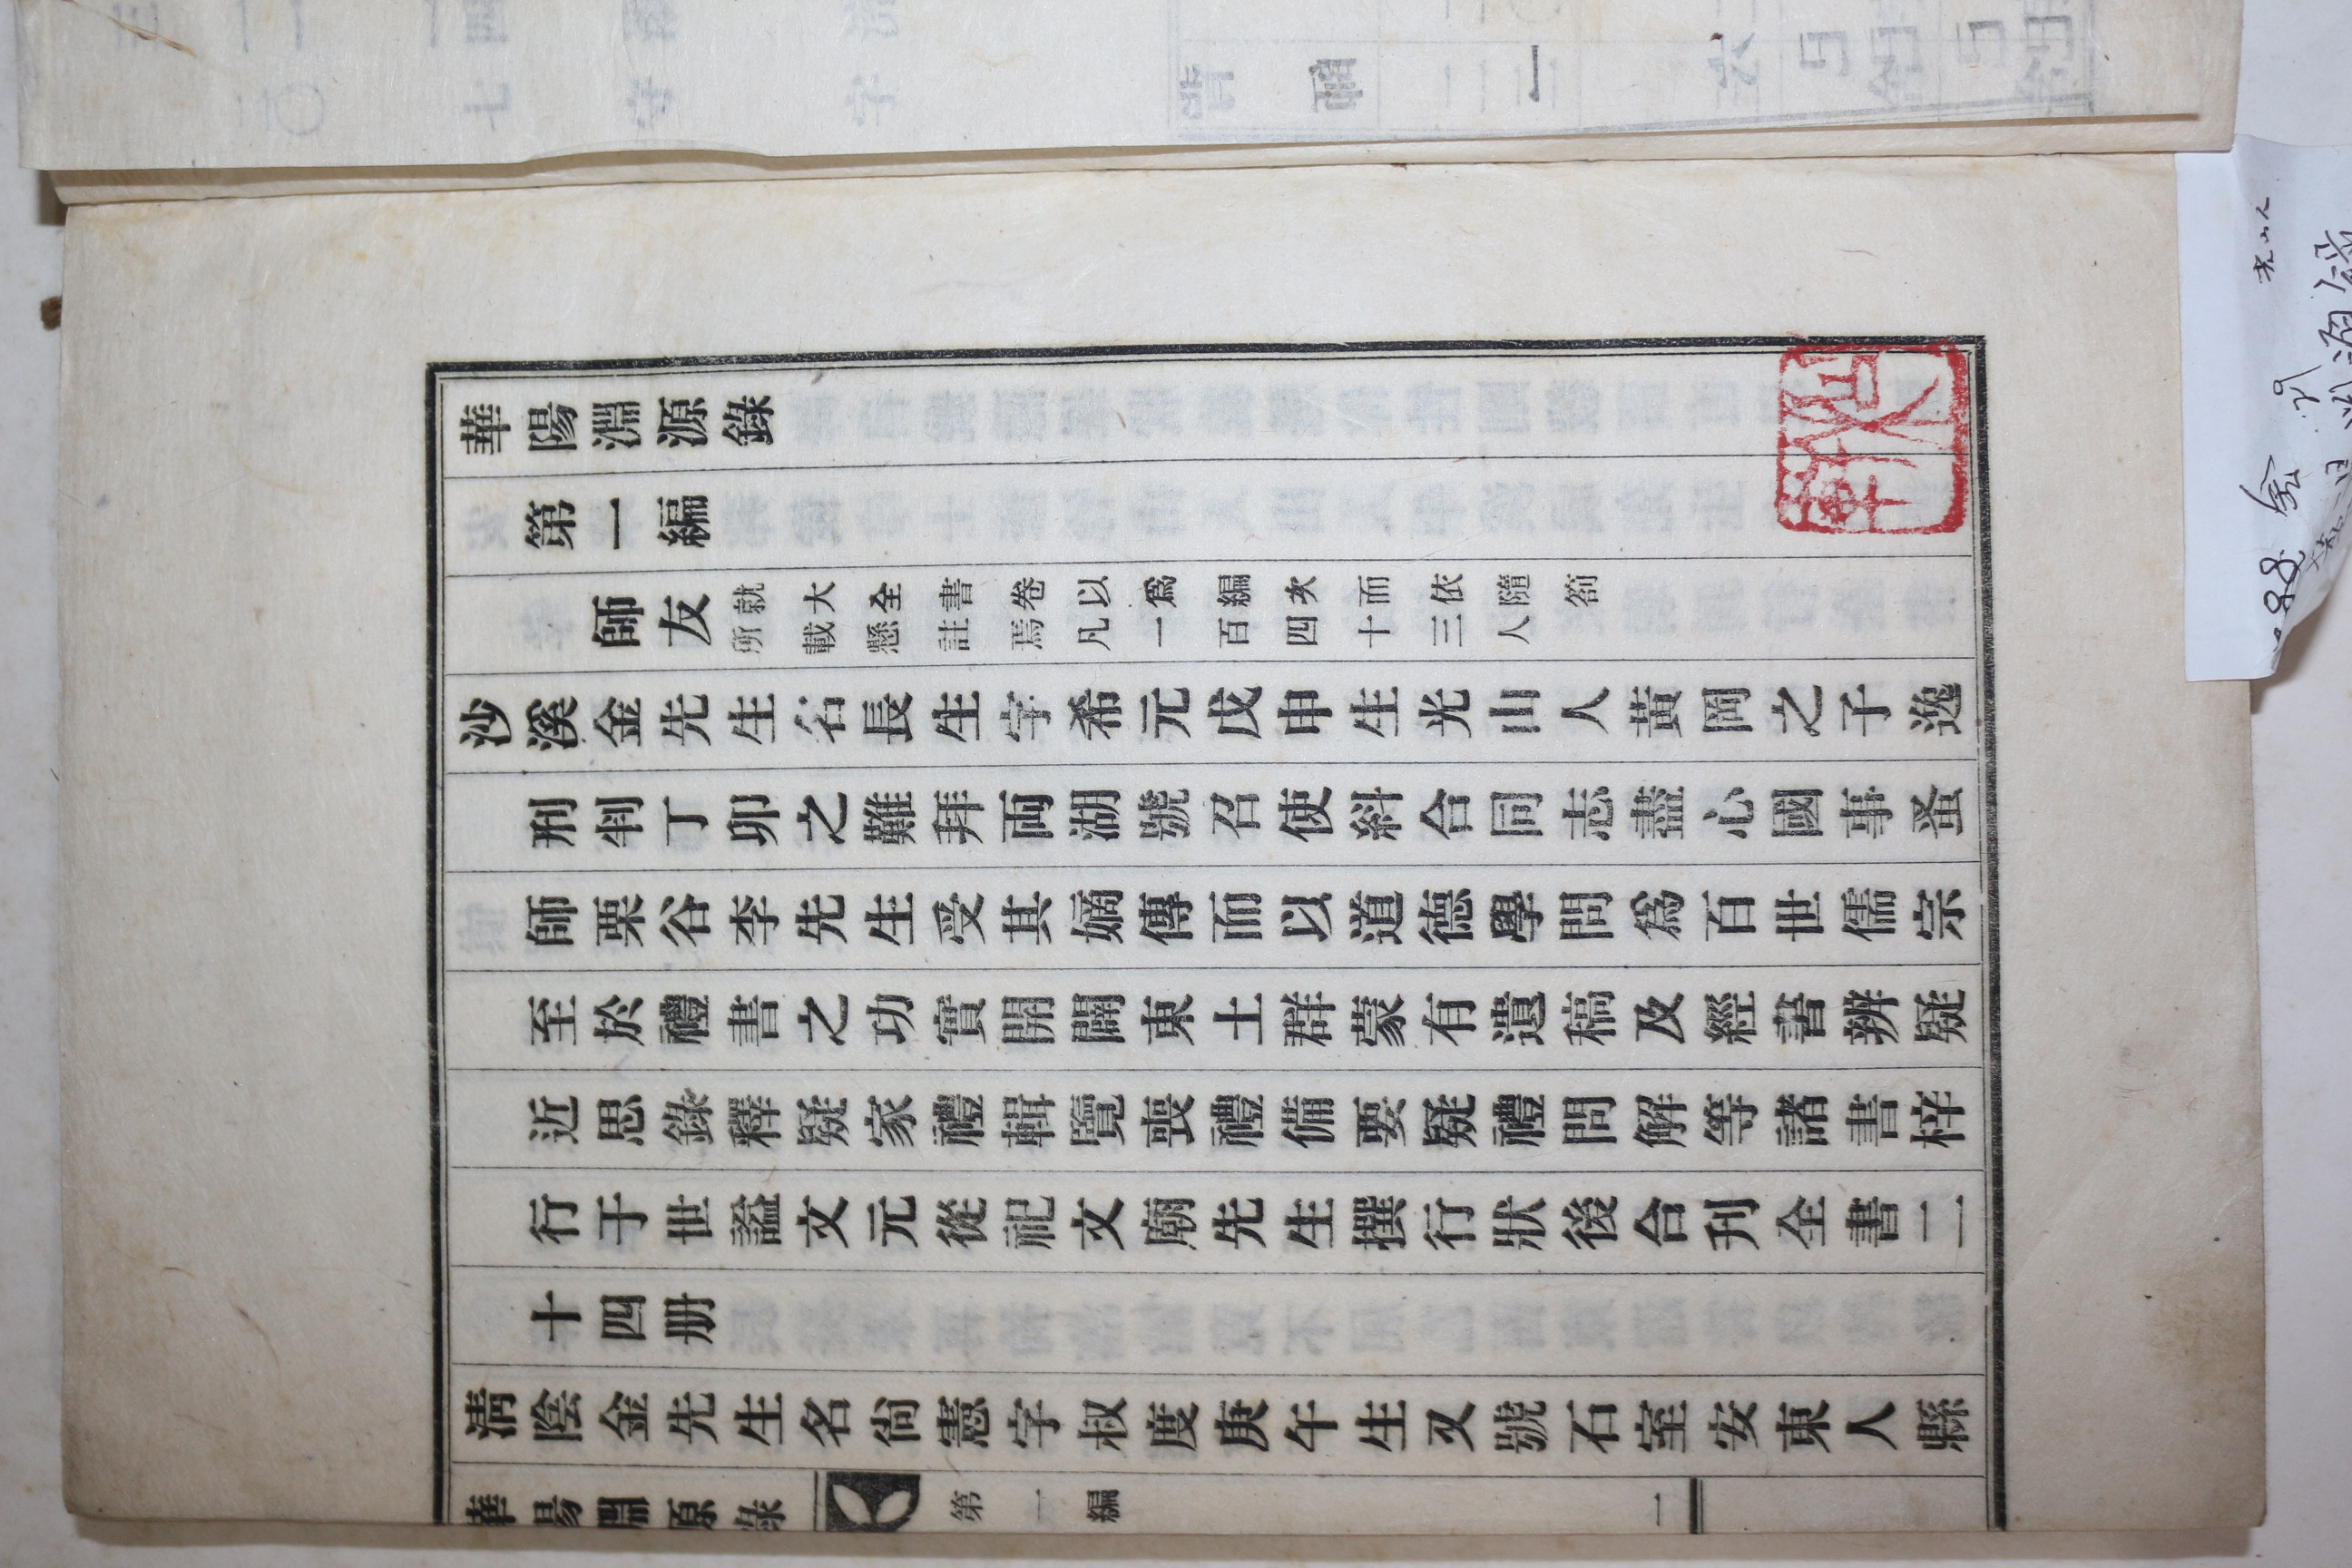 華陽淵源錄
第一編
師友
就大全書卷以爲編次而依隨箚
所載懸註焉凡一百四十三人
沙溪金先生名長生字希元戊申生光山人黃岡之子逸
刑判丁卯之難拜両湖號召使糾合同志盡心國事蚤
師栗谷李先生受其嫡傳而以道德學問爲百世儒宗
至於禮書之功實開闢東土群蒙有遺稿及經書辨疑
近思錄釋疑家禮輯覽喪禮備要疑禮問解等諸書梓
行于世謚文元從祀文廟先生撰行狀後合刊全書二
十四册
淸陰金先生名尙憲字叔度庚午生又號石室安東人縣
華陽淵源錄 第一編 二
軒
光山人
金
29
淵源錄